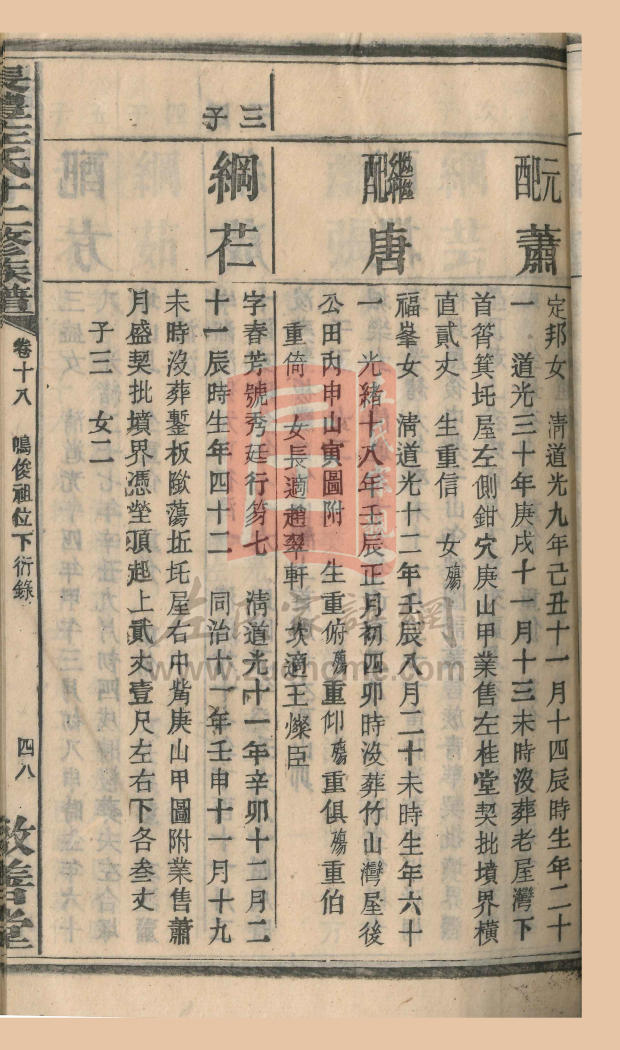 元配蕭
定邦女 淸道光九年己丑十一月十四辰時生年二十
一 道光三十年庚戌十一月十三未時沒葬老屋灣下
首筲箕坨屋左側鉗穴庚山甲業售左桂堂契批墳界橫
直貳丈 生重信 女殤
繼配唐
福峯女 淸道光十二年壬辰八月二十未時生年六十
一 光緒十八年壬辰正月初四卯時沒葬竹山灣屋後
公田內申山寅圖附 生重俯殤重仰殤重俱殤重伯
重倚 女長適趙翠軒 次適王燦臣
三子
綱芢
字春芳號秀廷行第七 淸道光十一年辛卯十二月二
十一辰時生年四十二 同治十一年壬申十一月十九
未時沒葬鏨板歘蕩坵坨屋右中嘴庚山甲圖附業售蕭
月盛契批墳界憑塋頂起上貳丈壹尺左右下各叁丈
子三 女二
左氏十二修族譜
卷十八 鳴俊祖位下衍錄
四八
敦善堂
左氏家譜網
www.zuohome.com